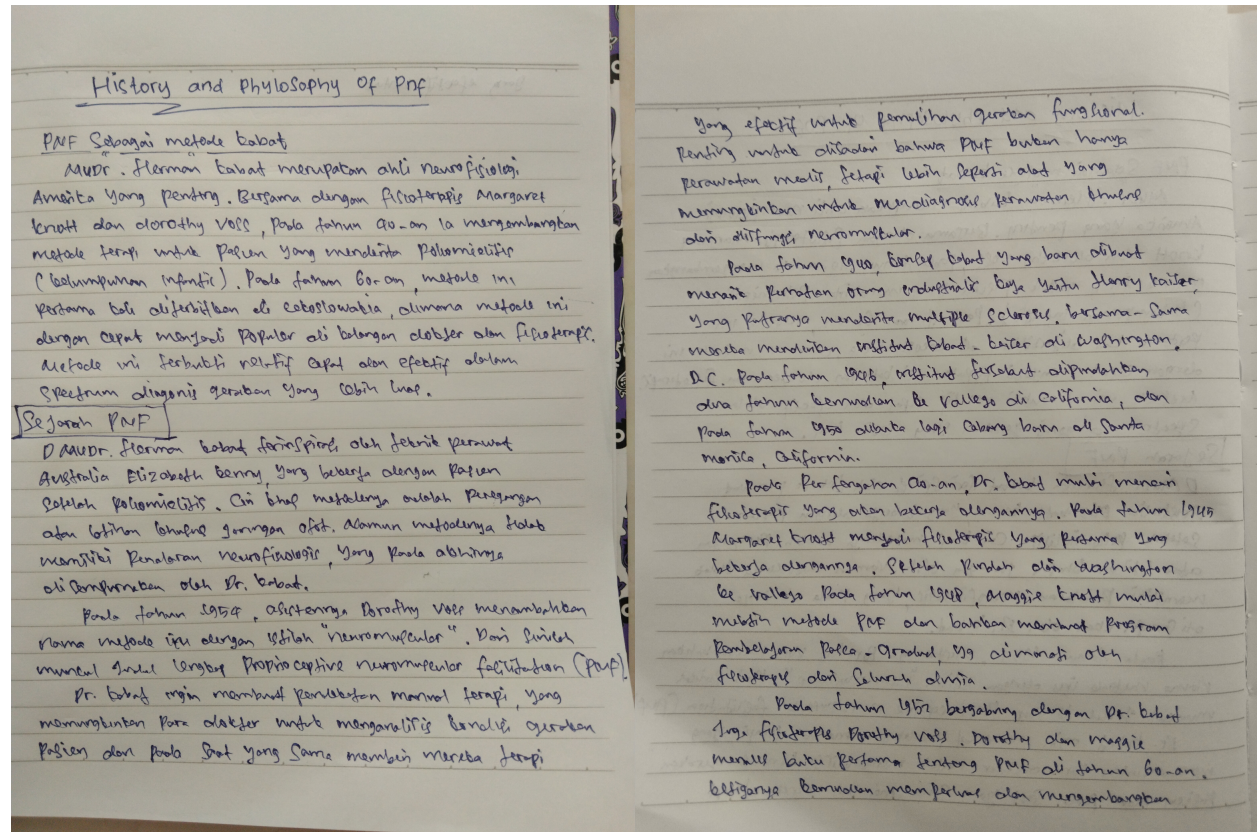 History and Phylosophy Of Pnf
PNF Sebagai metode kabat
MUDr. Herman kabat merupakan ahli neurofisiologi
Amerika yang penting. Bersama dengan fisioterapis Margaret
knott dan dorothy voss, Pada tahun 40-an Ia mengembangkan
metode terapi untuk Pasien yang menderita Poliomielitis
(kelumpuhan infantis). Pada tahun 60-an, metode ini
pertama kali diterbitkan di cekoslowakia, dimana metode ini
dengan cepat menjadi Popular di kalangan dokter dan fisioterapis.
Metode ini terbukti relatif cepat dan efektif dalam
Spektrum diagonis gerakan yang lebih luas.
Sejarah PNF
MUDr. Herman kabat terinspirasi oleh teknik perawat
Australia Elizabeth kenny, yang bekerja dengan Pasien
Setelah Poliomielitis. Ciri khas metodenya adalah Peregangan
atau latihan khusus jaringan otot. Namun metodenya tidak
memiliki Penalaran neurofisiologis, yang Pada akhirnya
di Sempurnakan oleh Dr. kabat.
Pada tahun 1954, asistennya Dorothy voss menambahkan
nama metode itu dengan istilah "neuromuscular". Dari Sinilah
muncul Judul lengkap Proprioceptive neuromuscular facilitation (PNF).
Dr. kabat ingin membuat pendekatan manual terapi, yang
memungkinkan Para dokter untuk menganalisis kondisi gerakan
Pasien dan Pada Saat yang Sama memberi mereka terapi
Yang efektif untuk pemulihan gerakan fungsional.
Penting untuk disadari bahwa PNF bukan hanya
Perawatan medis, tetapi lebih Seperti alat yang
memungkinkan untuk mendiagnosis perawatan khusus
dari disfungsi neuromuskular.
Pada tahun 1940, konsep kabat yang baru dibuat
menarik Perhatian orang industrialis kaya yaitu Henry kaiser,
Yang Putranya menderita multiple Sclerosis, bersama-Sama
mereka mendirikan institut kabat-keiser di Washington.
D.C. Pada tahun 1946, institut tersebut dipindahkan
dua tahun kemudian ke Vallego di California, dan
Pada tahun 1950 dibuka lagi Cabang baru di Santa
monica, California.
Pada Pertengahan 40-an, Dr. kabat mulai mencari
fisioterapis yang akan bekerja dengannya. Pada tahun 1945
Margaret knott menjadi fisioterapis yang Pertama yang
bekerja dengannya. Setelah Pindah dari Washington
ke Vallego Pada tahun 1948, Maggie knott mulai
melatih metode PNF dan bahkan membuat Program
Pembelajaran Pasca-Gradual, yg diminati oleh
fisioterapis dari Seluruh dunia.
Pada tahun 1952 bergabung dengan Dr. kabat
Juga fisioterapis Dorothy voss. Dorothy dan maggie
menulis buku Pertama tentang PNF di tahun 60-an.
ketiganya kemudian memperluas dan mengembangkan